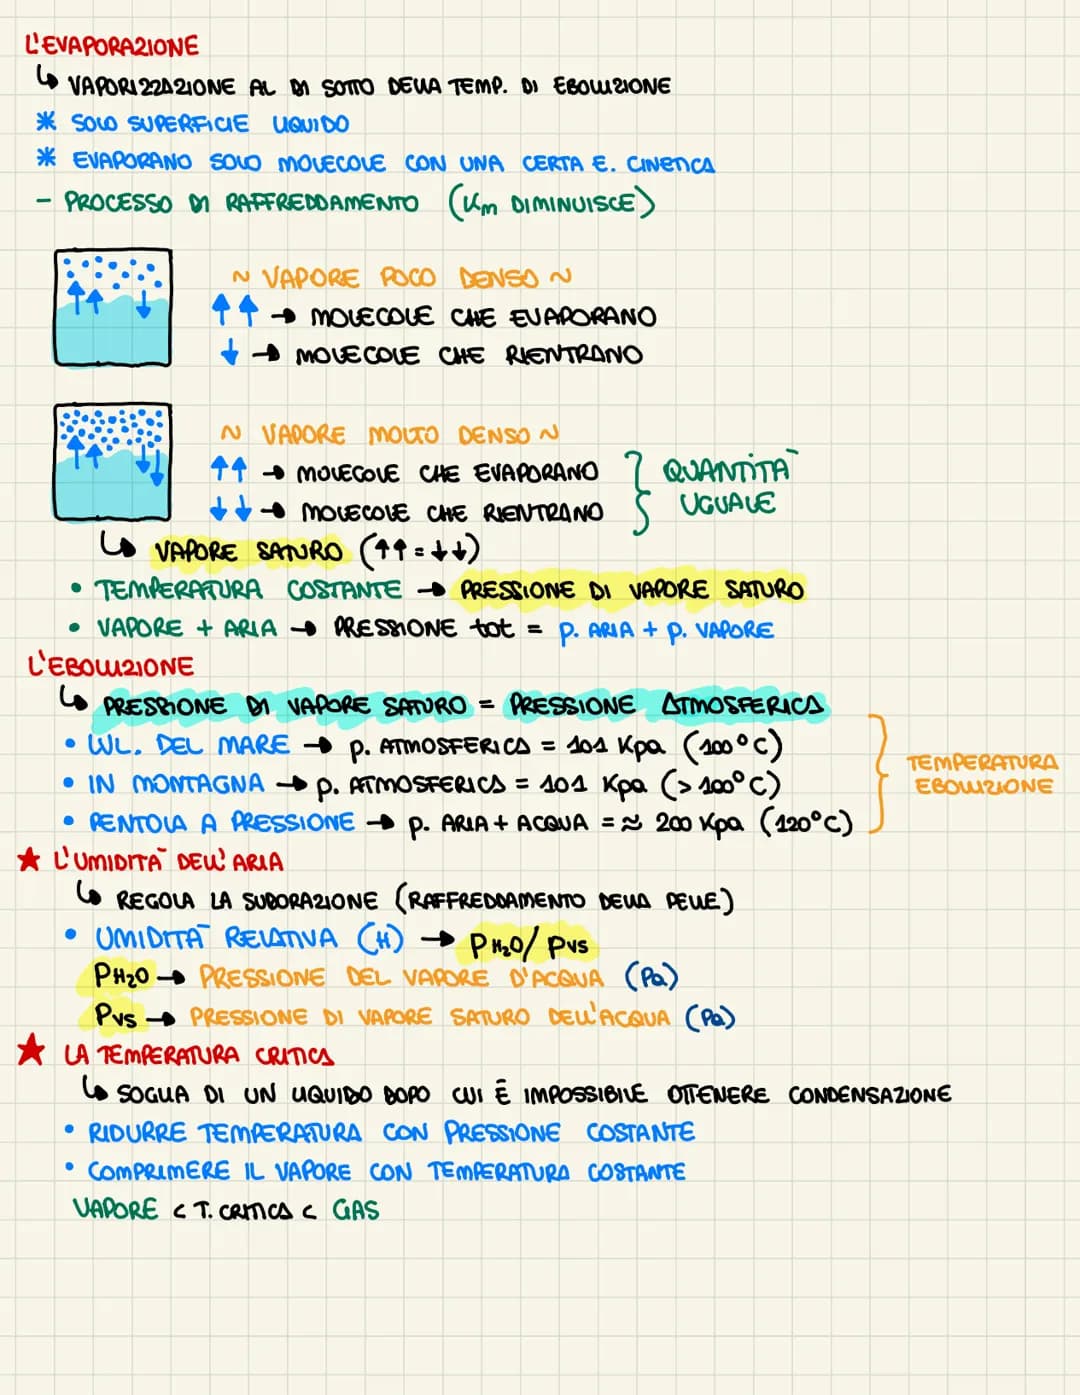 L'EVAPORAZIONE
↳ VAPORIZZAZIONE AL DI SOTTO DELLA TEMP. DI EBOLLIZIONE
* SOLO SUPERFICIE LIQUIDO
* EVAPORANO SOLO MOLECOLE CON UNA CERTA E. CINETICA
- PROCESSO DI RAFFREDDAMENTO (Km DIMINUISCE)
~ VAPORE POCO DENSO ~
↑↑ → MOLECOLE CHE EVAPORANO
↓ → MOLECOLE CHE RIENTRANO
~ VAPORE MOLTO DENSO ~
↑↑ → MOLECOLE CHE EVAPORANO
↓↓ → MOLECOLE CHE RIENTRANO
} QUANTITÀ
UGUALE
↳ VAPORE SATURO (↑↑=↓↓)
• TEMPERATURA COSTANTE → PRESSIONE DI VAPORE SATURO
• VAPORE + ARIA → PRESSIONE tot = p. ARIA + p. VAPORE
L'EBOLLIZIONE
↳ PRESSIONE DI VAPORE SATURO = PRESSIONE ATMOSFERICA
• LVL. DEL MARE → p. ATMOSFERICA = 101 Kpa (100°C)
• IN MONTAGNA → p. ATMOSFERICA = 101 Kpa (> 100°C)
• PENTOLA A PRESSIONE → p. ARIA + ACQUA = ≈ 200 Kpa (120°C)
} TEMPERATURA
EBOLLIZIONE
★ L'UMIDITÀ DELL'ARIA
↳ REGOLA LA SUDORAZIONE (RAFFREDDAMENTO DELLA PELLE)
• UMIDITÀ RELATIVA (H) → PH₂O/ Pvs
PH₂O → PRESSIONE DEL VAPORE D'ACQUA (Pa)
Pvs → PRESSIONE DI VAPORE SATURO DELL'ACQUA (Pa)
★ LA TEMPERATURA CRITICA
↳ SOGLIA DI UN LIQUIDO DOPO CUI È IMPOSSIBILE OTTENERE CONDENSAZIONE
• RIDURRE TEMPERATURA CON PRESSIONE COSTANTE
• COMPRIMERE IL VAPORE CON TEMPERATURA COSTANTE
VAPORE < T. CRITICA < GAS